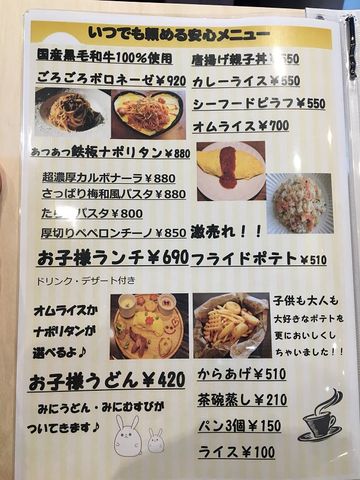 いつでも頼める安心メニュー
国産黒毛和牛100％使用
ごろごろボロネーゼ￥920
あつあつ鉄板ナポリタン￥880
超濃厚カルボナーラ￥880
さっぱり梅和風パスタ￥880
たら パスタ￥800
厚切りペペロンチーノ￥850
お子様ランチ￥690
ドリンク・デザート付き
オムライスか
ナポリタンが
選べるよ♪
お子様うどん￥420
みにうどん・みにむすびが
ついてきます♪
唐揚げ親子丼￥550
カレーライス￥550
シーフードピラフ￥550
オムライス￥700
激売れ！！
フライドポテト￥510
子供も大人も
大好きなポテトを
更においしくし
ちゃいました！！
からあげ￥510
茶碗蒸し￥210
パン3個￥150
ライス￥100